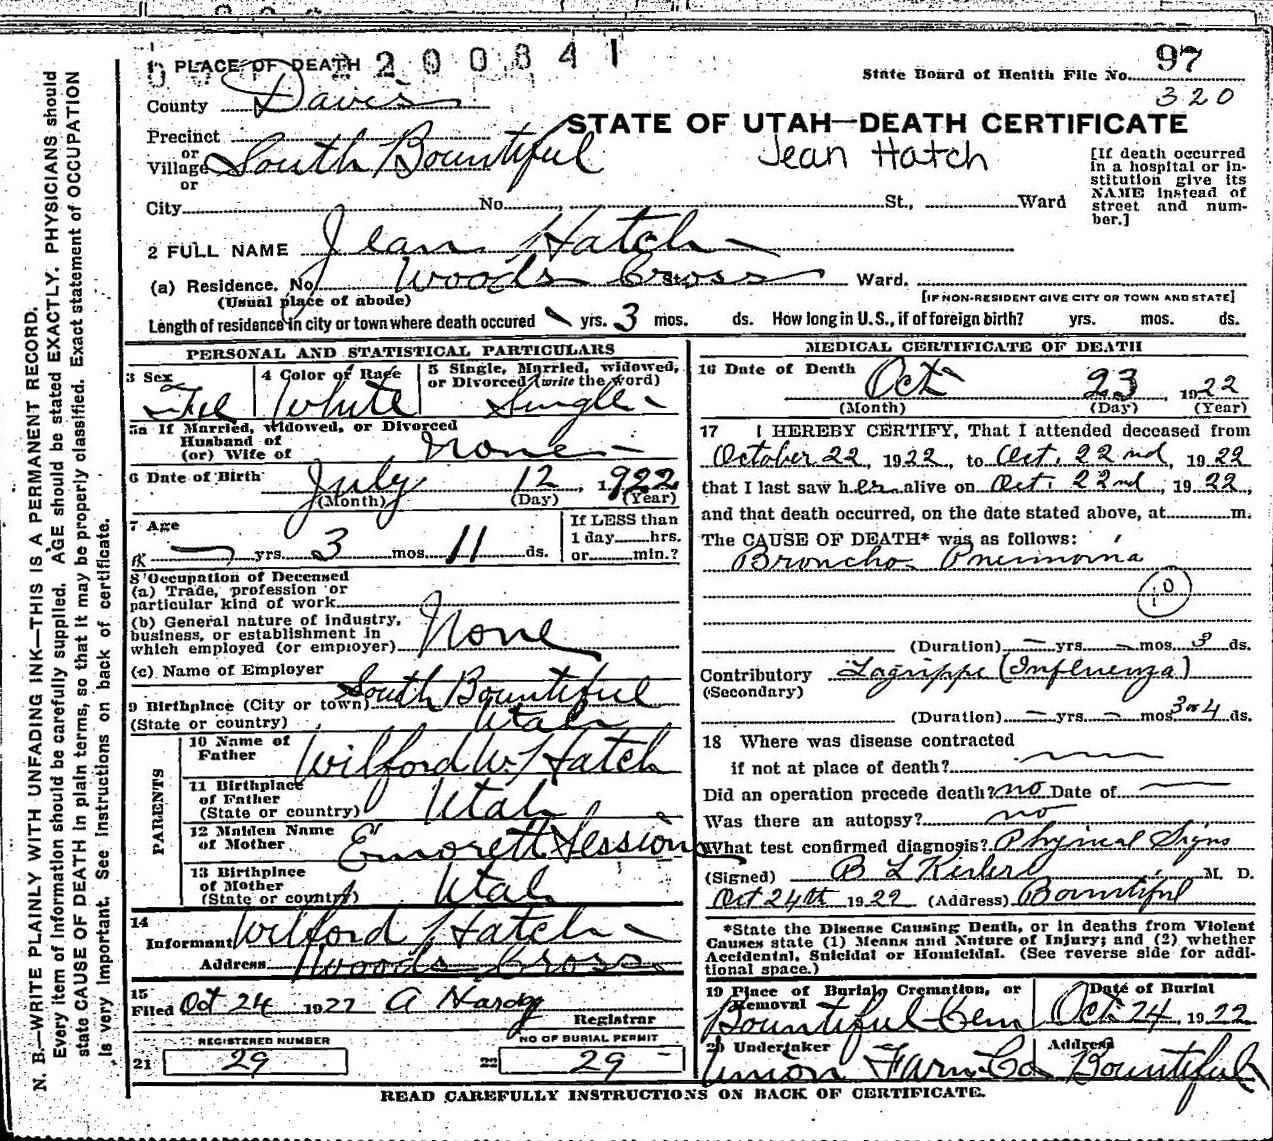 200841
1 PLACE OF DEATH
State Board of Health File No. 97
320
County Davis
STATE OF UTAH—DEATH CERTIFICATE
Precinct
or
Village South Bountiful
or
Jean Hatch
[If death occurred in a hospital or institution give its NAME instead of street and number.]
City No. St., Ward
2 FULL NAME Jean Hatch
(a) Residence. No. Woods Cross St. Ward.
(Usual place of abode) [IF NON-RESIDENT GIVE CITY OR TOWN AND STATE]
Length of residence in city or town where death occured yrs. 3 mos. ds. How long in U.S., if of foreign birth? yrs. mos. ds.
PERSONAL AND STATISTICAL PARTICULARS
3 Sex Fel
4 Color or Race White
5 Single, Married, widowed, or Divorced (write the word) Single
5a If Married, widowed, or Divorced
Husband of
(or) Wife of None
6 Date of Birth July 12, 1922
(Month) (Day) (Year)
7 Age
— yrs. 3 mos. 11 ds.
If LESS than
1 day hrs.
or min.?
8 Occupation of Deceased
(a) Trade, profession or
particular kind of work
(b) General nature of industry,
business, or establishment in
which employed (or employer) None
(c) Name of Employer
9 Birthplace (City or town) South Bountiful
(State or country) Utah
PARENTS
10 Name of Father Wilford W. Hatch
11 Birthplace of Father (State or country) Utah
12 Maiden Name of Mother Emorett Sessions
13 Birthplace of Mother (State or country) Utah
14
Informant Wilford Hatch
Address Woods Cross
15
Filed Oct 24 1922 A Hardy
Registrar
REGISTERED NUMBER
21 29
NO OF BURIAL PERMIT
22 29
MEDICAL CERTIFICATE OF DEATH
16 Date of Death Oct 23 1922
(Month) (Day) (Year)
17 I HEREBY CERTIFY, That I attended deceased from
October 22, 1922, to Oct. 22nd, 1922
that I last saw her alive on Oct. 22nd, 1922,
and that death occurred, on the date stated above, at m.
The CAUSE OF DEATH* was as follows:
Broncho Pneumonia
10
(Duration) — yrs. — mos. 3 ds.
Contributory Lagrippe (Influenza)
(Secondary)
(Duration) — yrs. — mos. 3 or 4 ds.
18 Where was disease contracted
if not at place of death?
Did an operation precede death? no Date of
Was there an autopsy? no
What test confirmed diagnosis? Physical Signs
(Signed) B L Kesler M. D.
Oct 24th 1922 (Address) Bountiful
*State the Disease Causing Death, or in deaths from Violent
Causes state (1) Means and Nature of Injury; and (2) whether
Accidental, Suicidal or Homicidal. (See reverse side for addi-
tional space.)
19 Place of Burial, Cremation, or Removal Bountiful Cem
Date of Burial Oct 24, 1922
20 Undertaker Union Farm Co
Address Bountiful
READ CAREFULLY INSTRUCTIONS ON BACK OF CERTIFICATE.
N. B.—WRITE PLAINLY WITH UNFADING INK—THIS IS A PERMANENT RECORD.
Every item of information should be carefully supplied. AGE should be stated EXACTLY. PHYSICIANS should
state CAUSE OF DEATH in plain terms, so that it may be properly classified. Exact statement of OCCUPATION
is very important. See instructions on back of certificate.